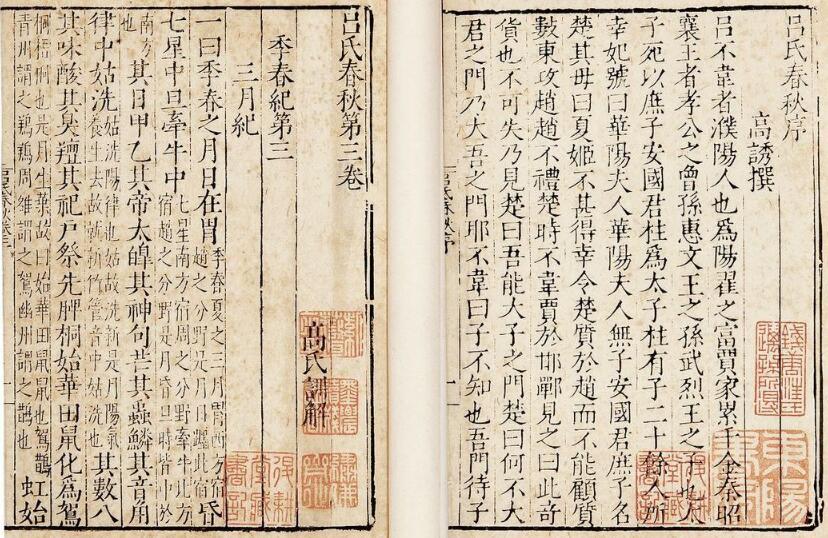 呂氏春秋序
高誘撰
呂不韋者濮陽人也爲陽翟之富賈家累千金秦昭
襄王者孝公之曾孫惠文王之孫武烈王之子也太
子死以庶子安國君柱爲太子柱有子二十餘人所
幸妃號曰華陽夫人華陽夫人無子安國君庶子名
楚其母曰夏姬不甚得幸令楚質於趙而不能顧質
數東攻趙趙不禮楚時不韋賈於邯鄲見之曰此奇
貨也不可失乃見楚曰吾能大子之門楚曰何不大
君之門乃大吾之門耶不韋曰子不知也吾門待子
呂氏春秋序
呂氏春秋第三卷
高氏訓解
季春紀第三
三月紀
一曰季春之月日在胃季春夏之三月胃西方宿趙之分野是月日躔此宿昏
七星中旦牽牛中七星南方宿周之分野牽牛北方宿趙之分野是月昏旦時皆中於
南方也其日甲乙其帝太皥其神句芒其蟲鱗其音角
律中姑洗姑洗陽律也姑故洗新是月陽氣養生去故就新竹管音中姑洗也其數八
其味酸其臭羶其祀戶祭先脾桐始華田鼠化爲鴽
桐梧桐也是月生葉故曰始華田鼠鼠也鴽
青州謂之周雒謂之鴽幽州謂之也虹始
呂氏春秋卷三